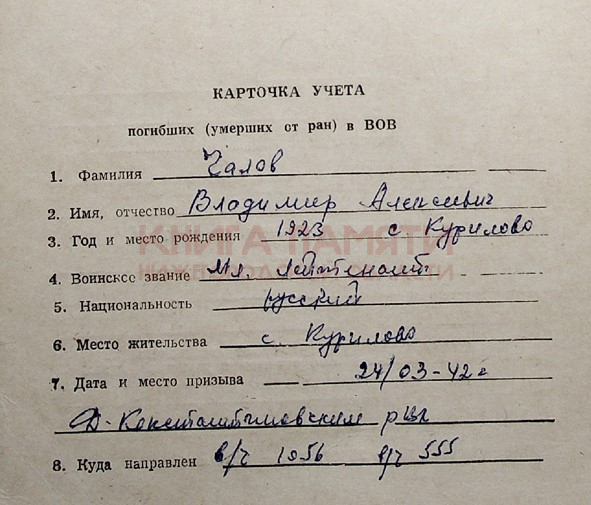 КАРТОЧКА УЧЕТА
погибших (умерших от ран) в ВОВ
1. Фамилия Чалов
2. Имя, отчество Владимир Алексеевич
3. Год и место рождения 1923 с Курилово
КНИГА ПАМЯТИ
НИЖЕГОРОДСКОЙ ОБЛАСТИ
4. Воинское звание Мл. лейтенант
5. Национальность русский
6. Место жительства с. Курилово
7. Дата и место призыва 24/03-42г
Д-Константиновским рвк
8. Куда направлен в/ч 1056 в/ч 555